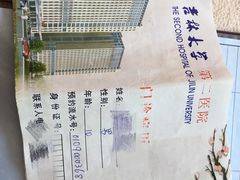 吉林大学
第二医院
THE SECOND HOSPITAL OF JILIN UNIVERSITY
门诊病历
姓名:
性别: 男
年龄: 10
预约流水号: 0109000368
身份证号:
联系人电